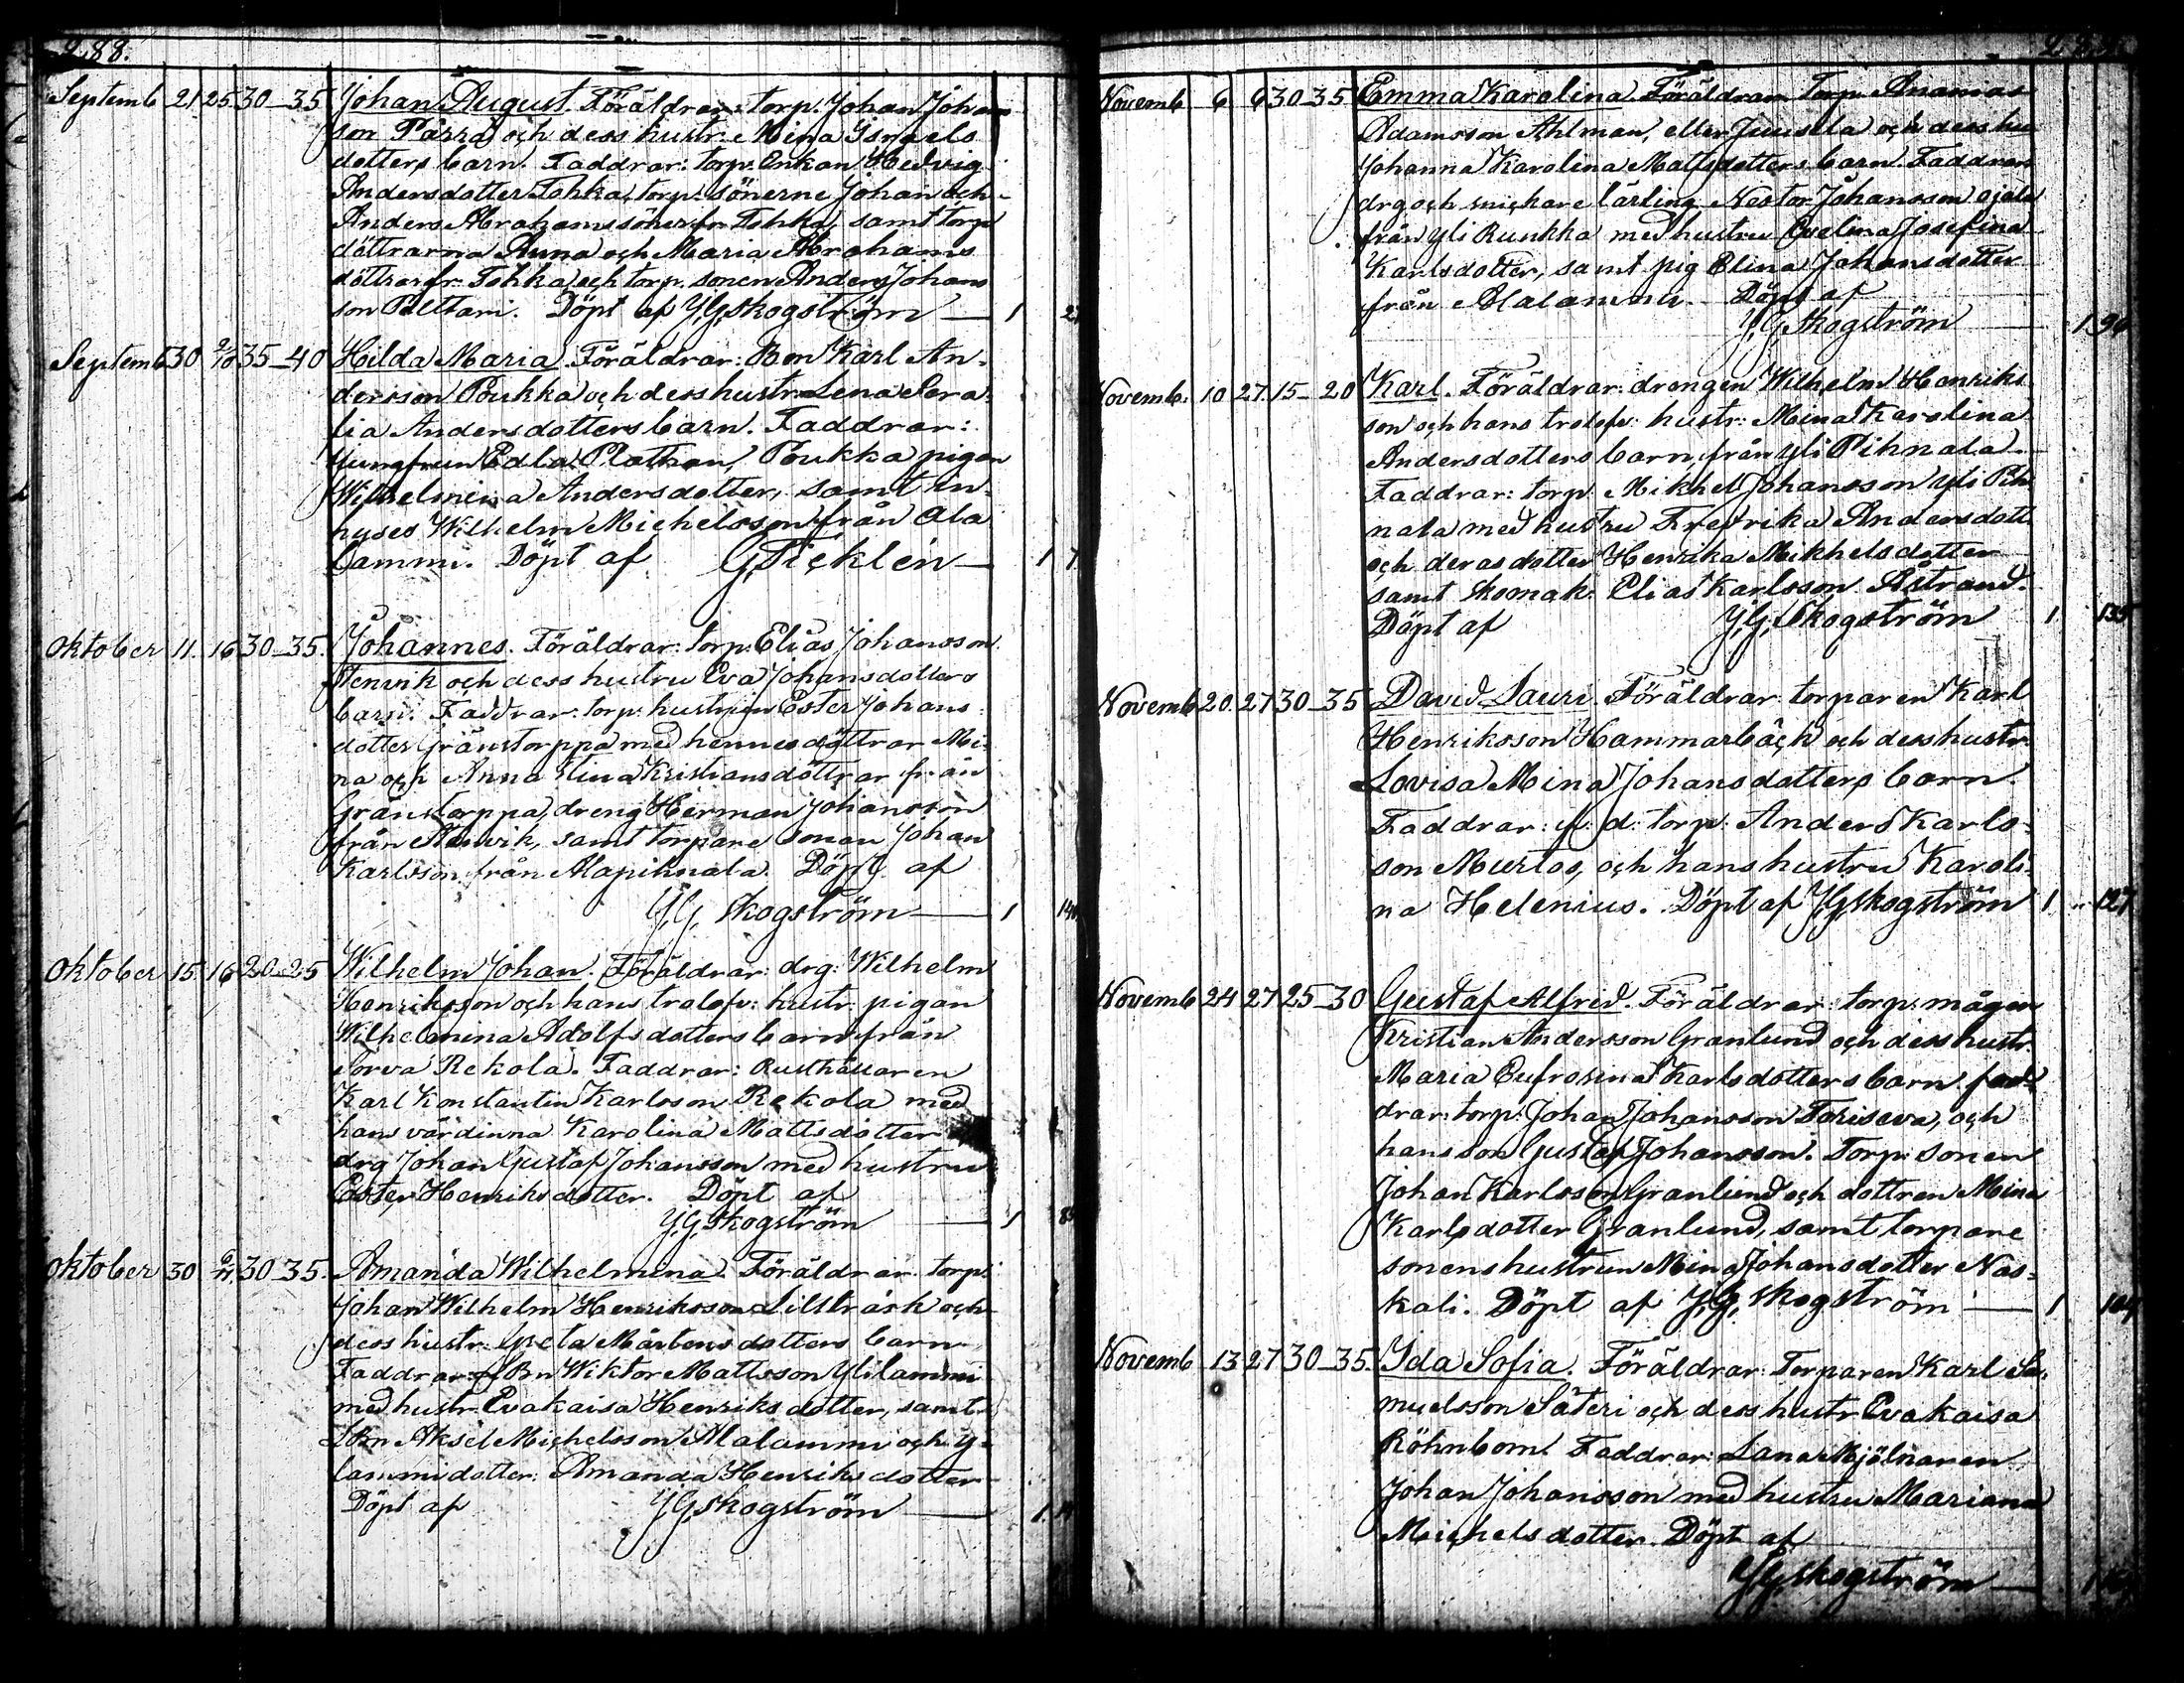 288.
Septemb 21 25 30-35 Johan August. Föräldrar: torp. Johan Johans
son Pärrä och dess hustr: Mina Israels
dotters barn. Faddrar: torp. Enkan Hedvig
Andersdotter Tohka, torp. sönerne Johan och
Anders Abrahamssöner fr. Tohka, samt torp
döttrarna Anna och Maria Abrahams
döttrar fr. Tohka och torp. sonen Anders Johans
son Pelttari. Döpt af J.G. Skogström — 1
Septemb 30 2/10 35-40 Hilda Maria. Föräldrar: Bon Karl An-
dersson Poukka och dess hustr. Lena Sera-
fia Andersdotters barn. Faddrar:
Jungfrun Edla Plathan, Poukka pigan
Wilhelmina Andersdotter, samt in-
hyses Wilhelm Michelsson från Ala
lammi. Döpt af G. Ticklén — 1
Oktober 11. 16 30-35. Johannes. Föräldrar: torp. Elias Johansson
Stenvik och dess hustru Eva Johansdotters
barn. Faddrar: torp. hustrun Ester Johans-
dotter Gränstorppa med hennes döttrar Mi-
na och Anna Stina Kristiansdöttrar från
Gränstorppa, dreng Herman Johansson
från Stenvik, samt torpare sonen Johan
Karlsson från Alapihnala. Döpt af
J.G. Skogström — 1
Oktober 15. 16 20-25 Wilhelm Johan. Föräldrar: drg: Wilhelm
Henriksson och hans trolofv: hustr. pigan
Wilhelmina Adolfsdotters barn från
Torva Rekola. Faddrar: Rusthållaren
Karl Konstantin Karlsson Rekola med
hans värdinna Karolina Mattsdotter
drg Johan Gustaf Johansson med hustru
Ester Henriksdotter. Döpt af
J.G. Skogström — 1
Oktober 30 6/11 30-35. Amanda Wilhelmina. Föräldrar torp.
Johan Wilhelm Henriksson Lillträsk och
dess hustr. Greta Mårtensdotters barn
Faddrar: Bn Wiktor Mattsson Ylilammi
med hustr. Evakaisa Henriksdotter, samt
Bn Aksel Michelsson Alalammi och y-
lammi dotter: Amanda Henriksdotter
Döpt af J.G. Skogström — 1
Novemb 6 6 30-35 Emma Karolina. Föräldrar Torp. Ananias
Adamsson Ahlman, eller Juusela och dess hu
Johanna Karolina Mattsdotters barn. Faddrar
drg och snickare lärling Nestor Johansson Ojala
från Yli Runkka med hustru Evelina Josefina
Karlsdotter, samt pig Elina Johansdotter
från Alalammi. Döpt af
J.G. Skogström 1
Novemb. 10 27. 15-20 Karl. Föräldrar: drengen Wilhelm Henriks
son och hans trolofv: hustr: Mina Karolina
Andersdotters barn, från Yli Pihnala.
Faddrar: torp. Mikhel Johansson Yli Pih
nala med hustru Fredrika Andersdott
och deras dotter Henrika Mikhelsdotter
samt skomak. Elias Karlsson Åstrand.
Döpt af J.G. Skogström 1. 135
Novemb 20. 27 30-35 David Lauri. Föräldrar: torparen Karl
Henriksson Hammarbäck och dess hustr.
Lovisa Mina Johansdotters barn
Faddrar: f. d. torp. Anders Karls-
son Murtos, och hans hustru Karoli-
na Helenius. Döpt af J.G. Skogström 1 127
Novemb 24 27 25-30 Gustaf Alfred. Föräldrar: torp. mågen
Kristian Andersson Granlund och dess hustr.
Maria Eufrosina Karlsdotters barn. fad-
drar: torp. Johan Johansson Toriseva, och
hans son Gustaf Johansson. Torp. sonen
Johan Karlsson Granlund och dottren Mina
Karlsdotter Granlund, samt torpare
sonens hustrun Mina Johansdotter Nas-
kali. Döpt af J.G. Skogström — 1
Novemb 13 27 30-35. Ida Sofia. Föräldrar: Torparen Karl Sa-
muelsson Säteri och dess hustr Evakaisa
Röhnbom Faddrar: Lana Mjölnaren
Johan Johansson med hustru Mariana
Michelsdotter. Döpt af
J.G. Skogström — 1